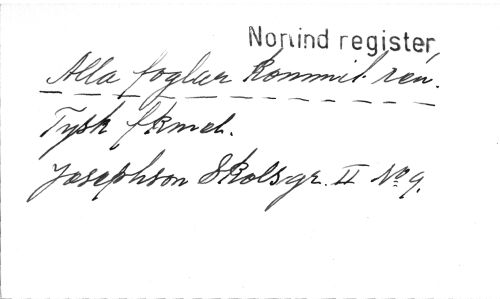 Norlind register
Alla foglar kommit ren.
Tysk fkmel.
Josephson Skolsgr. II No 9.